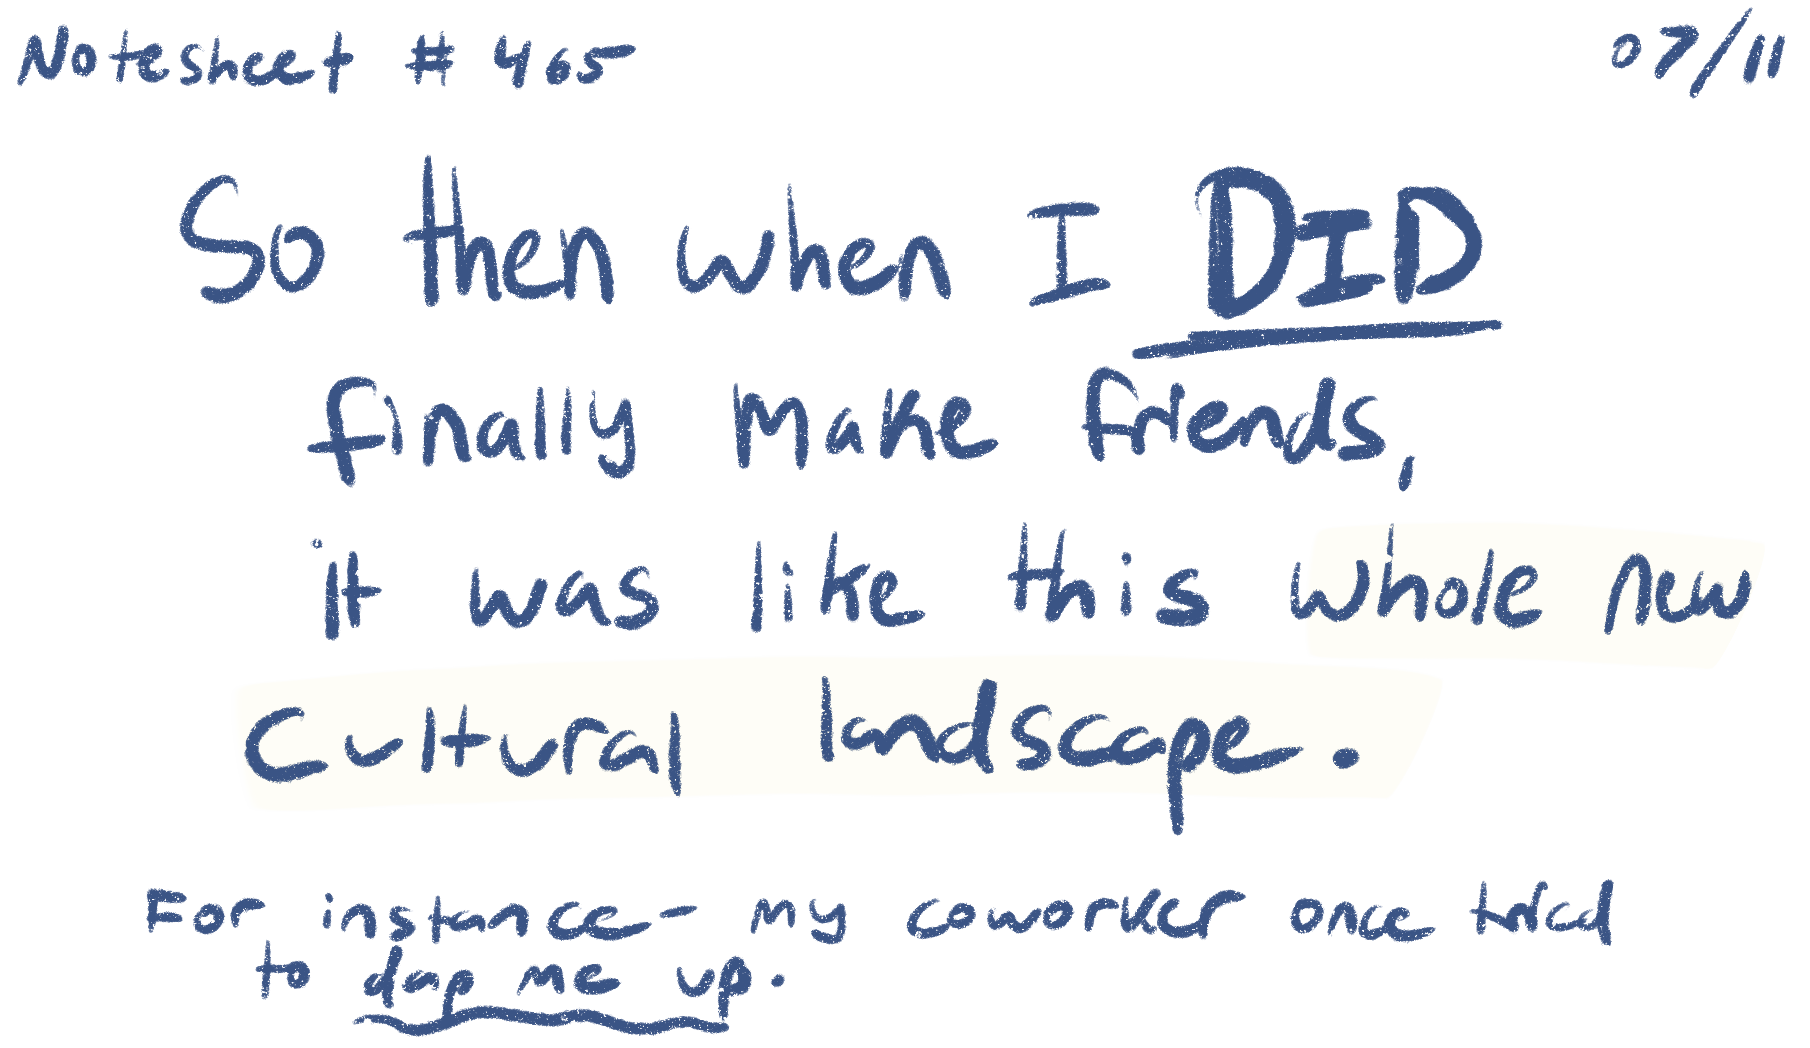 Notesheet # 465
07/11
So then when I DID
finally make friends,
it was like this whole new
cultural landscape.
For instance- my coworker once tried
to dap me up.